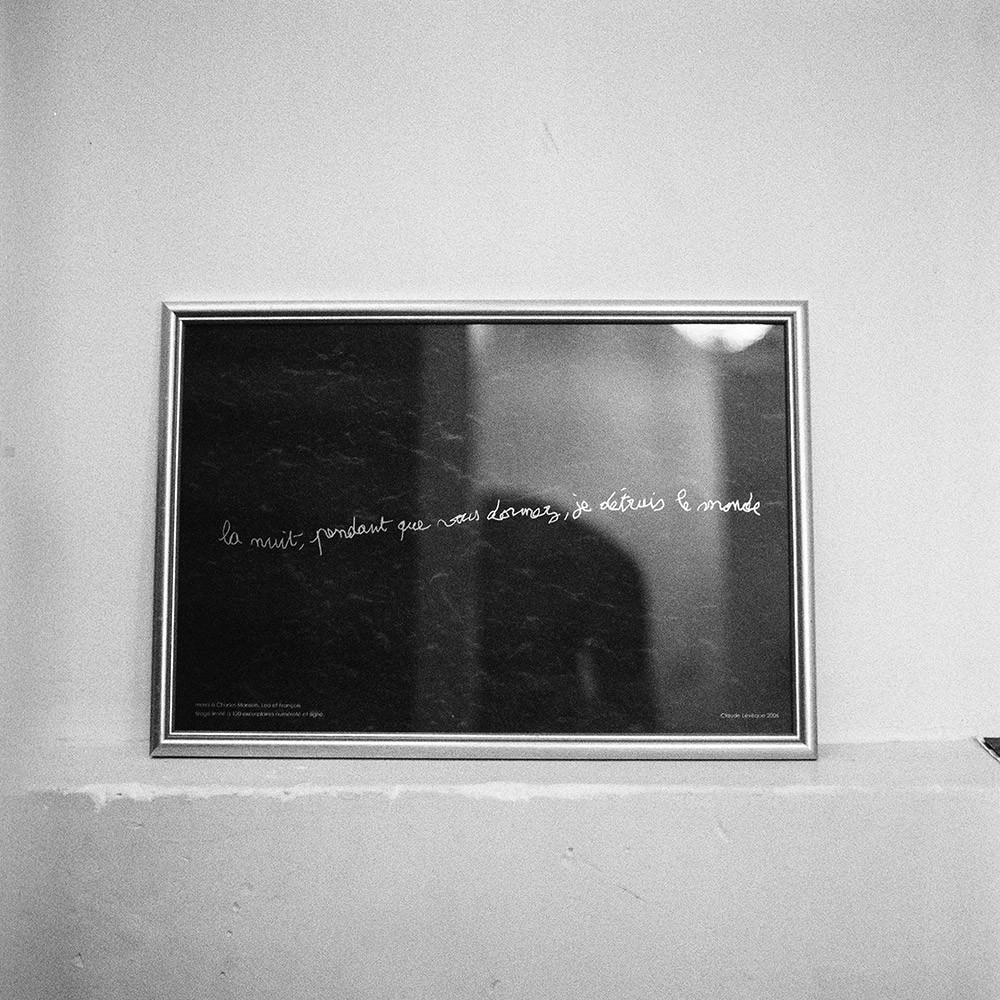 la nuit, pendant que vous dormez, je détruis le monde
merci à Charles Manson, Léo et François
tirage limité à 120 exemplaires numéroté et signé
Claude Lévêque 2006